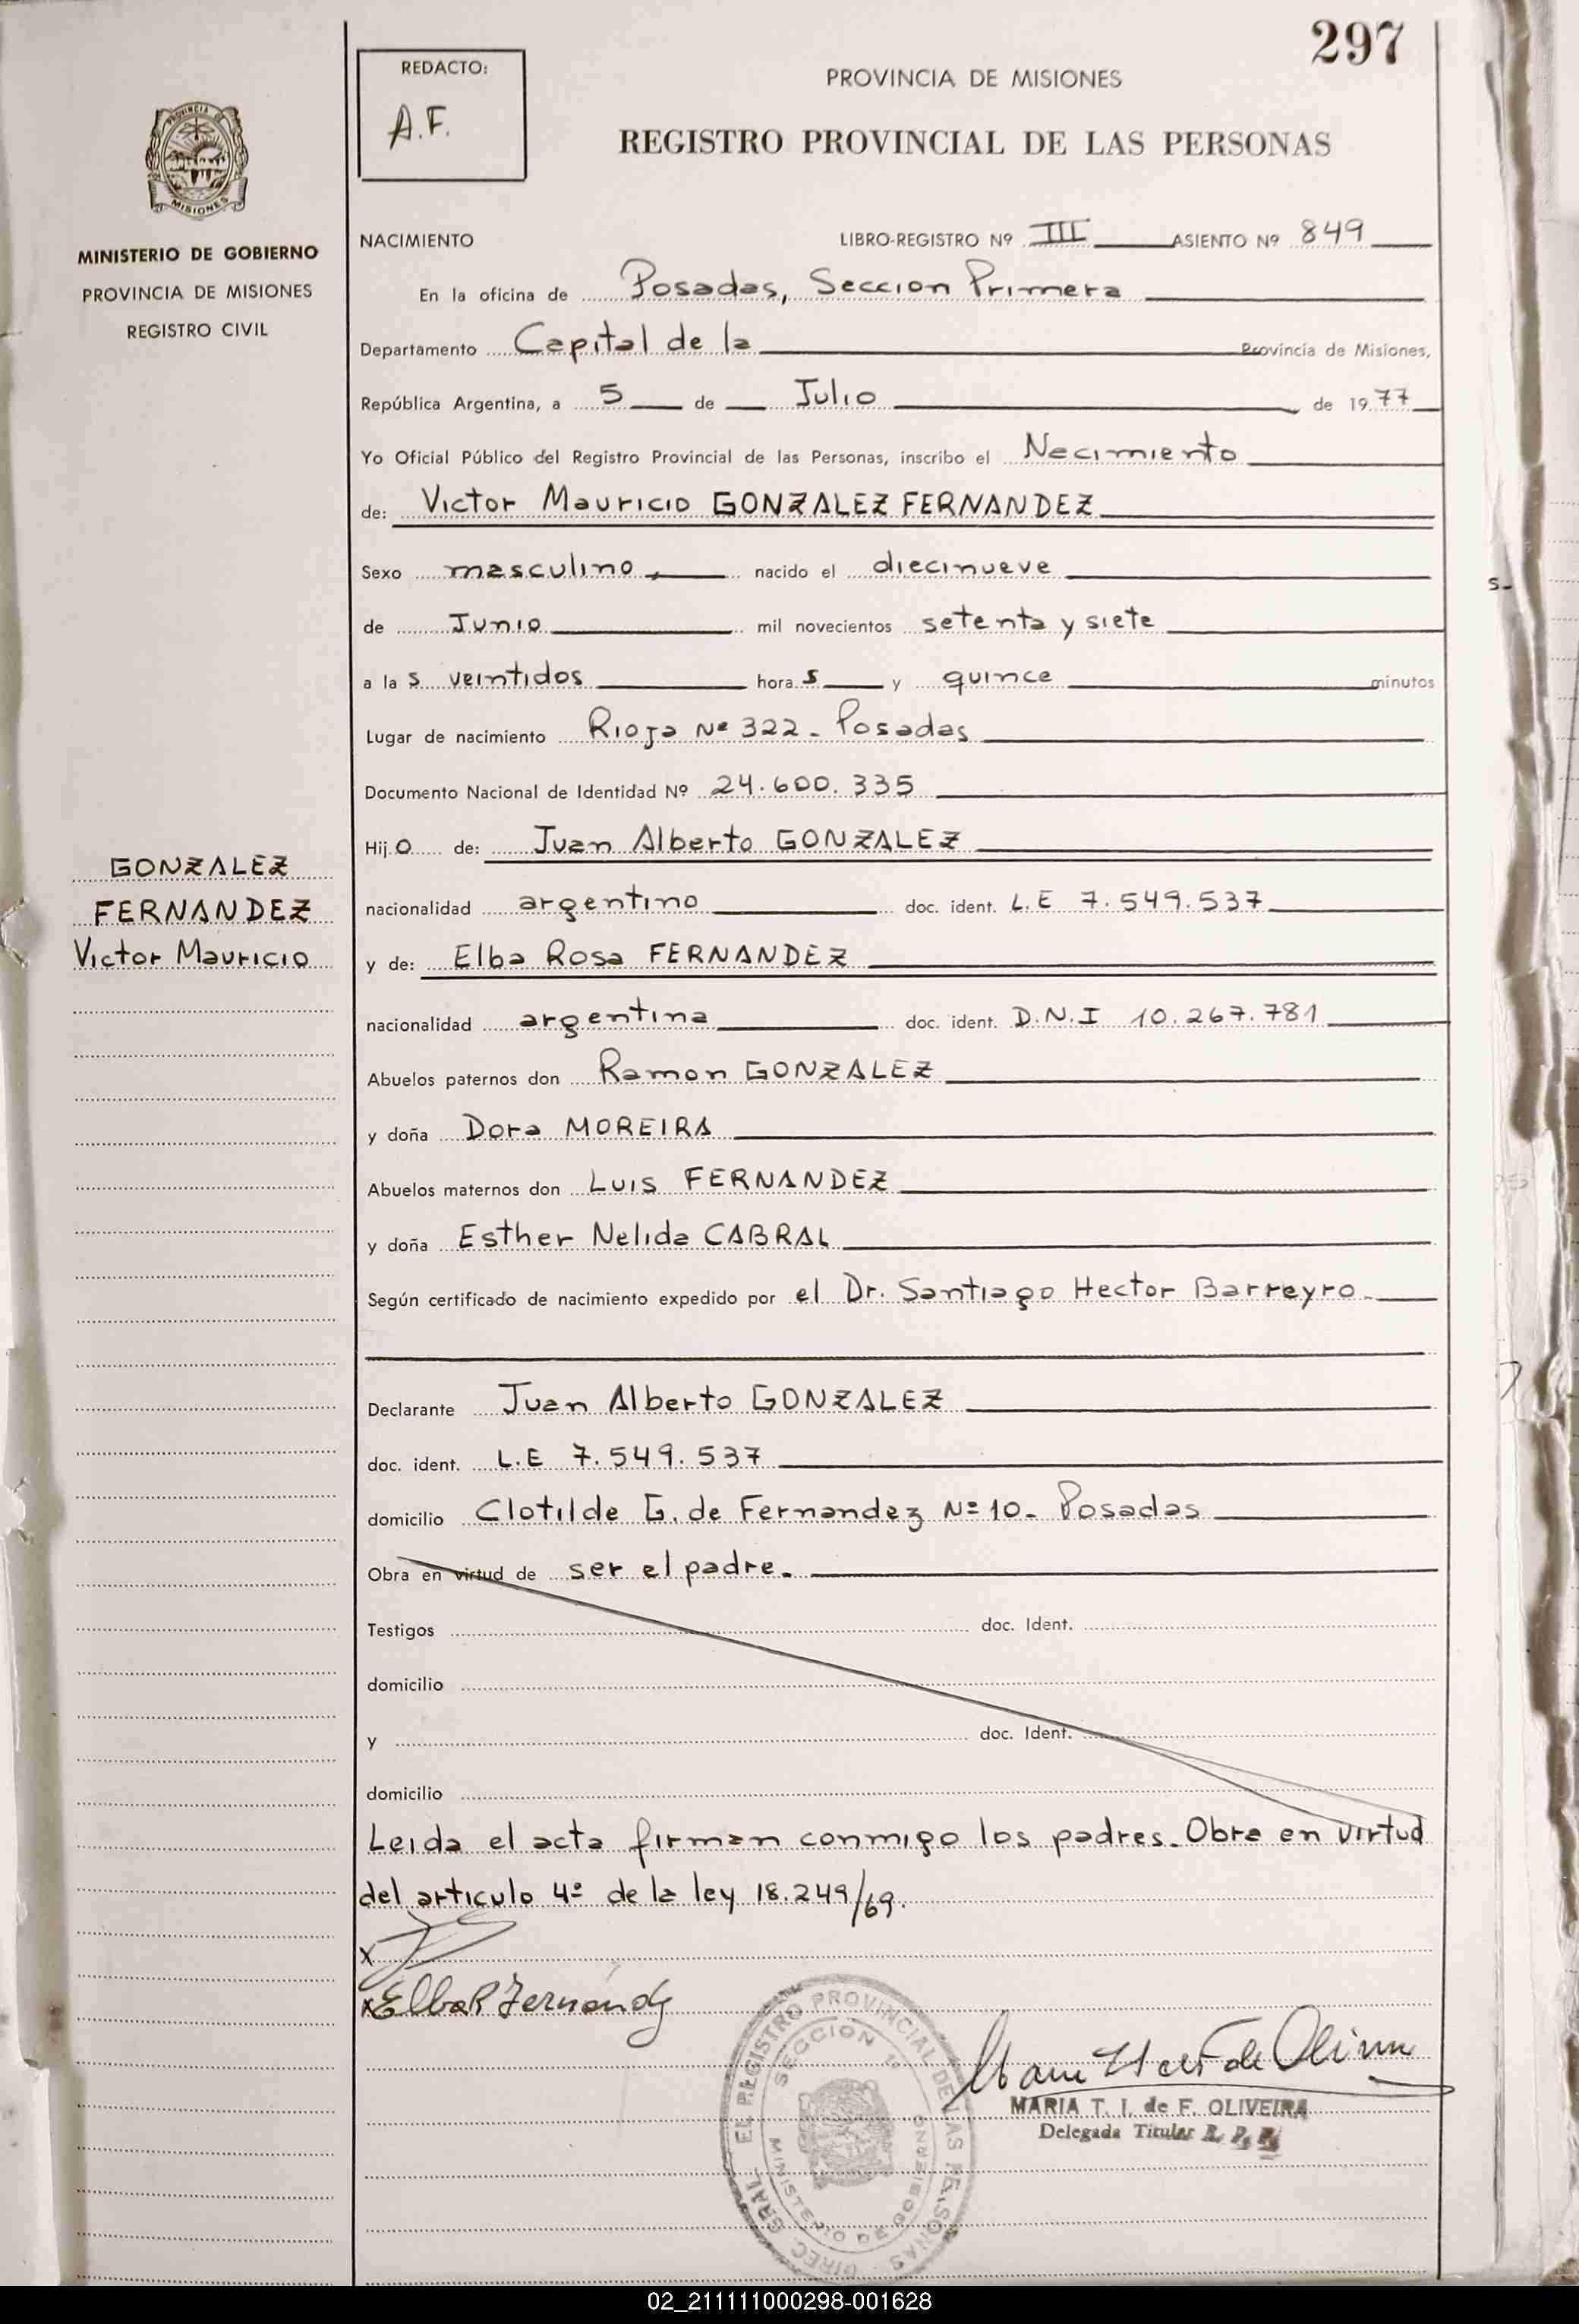 297
REDACTO:
A.F.
PROVINCIA DE MISIONES
REGISTRO PROVINCIAL DE LAS PERSONAS
PROVINCIA DE
MISIONES
MINISTERIO DE GOBIERNO
PROVINCIA DE MISIONES
REGISTRO CIVIL
NACIMIENTO LIBRO-REGISTRO Nº III ASIENTO Nº 849
En la oficina de Posadas, Seccion Primera
Departamento Capital de la Provincia de Misiones,
República Argentina, a 5 de Julio de 1977
Yo Oficial Público del Registro Provincial de las Personas, inscribo el Nacimiento
de: Victor Mauricio GONZALEZ FERNANDEZ
Sexo masculino, nacido el diecinueve
de Junio mil novecientos setenta y siete
a la s veintidos hora s y quince minutos
Lugar de nacimiento Rioja Nº 322 - Posadas
Documento Nacional de Identidad Nº 24.600.335
Hij o de: Juan Alberto GONZALEZ
nacionalidad argentino doc. ident. L.E 7.549.537
y de: Elba Rosa FERNANDEZ
nacionalidad argentina doc. ident. D.N.I 10.267.781
Abuelos paternos don Ramon GONZALEZ
y doña Dora MOREIRA
Abuelos maternos don Luis FERNANDEZ
y doña Esther Nelida CABRAL
Según certificado de nacimiento expedido por el Dr. Santiago Hector Barreyro.
Declarante Juan Alberto GONZALEZ
doc. ident. L.E 7.549.537
domicilio Clotilde G. de Fernandez Nº 10 - Posadas
Obra en virtud de ser el padre.
Testigos doc. Ident.
domicilio
y doc. Ident.
domicilio
Leida el acta firman conmigo los padres. Obra en virtud
del articulo 4º de la ley 18.249/69.
GONZALEZ
FERNANDEZ
Victor Mauricio
x
x Elba R Fernández
DIREC. GRAL. EL REGISTRO PROVINCIAL DE LAS PERSONAS
SECCION 1ª
MINISTERIO DE GOBIERNO
MARIA T. I. de F. OLIVEIRA
Delegada Titular R. P. P.
02_211111000298-001628